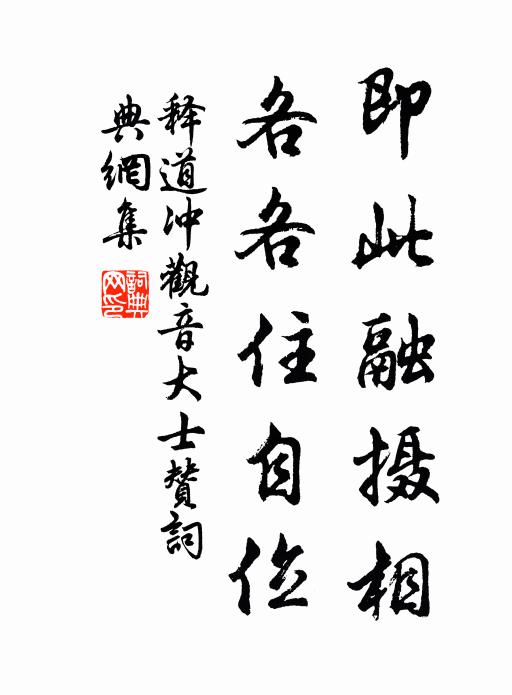 即此融摄相
各各住自位
释道冲觀音大士賛詞
典網集
詞典網印